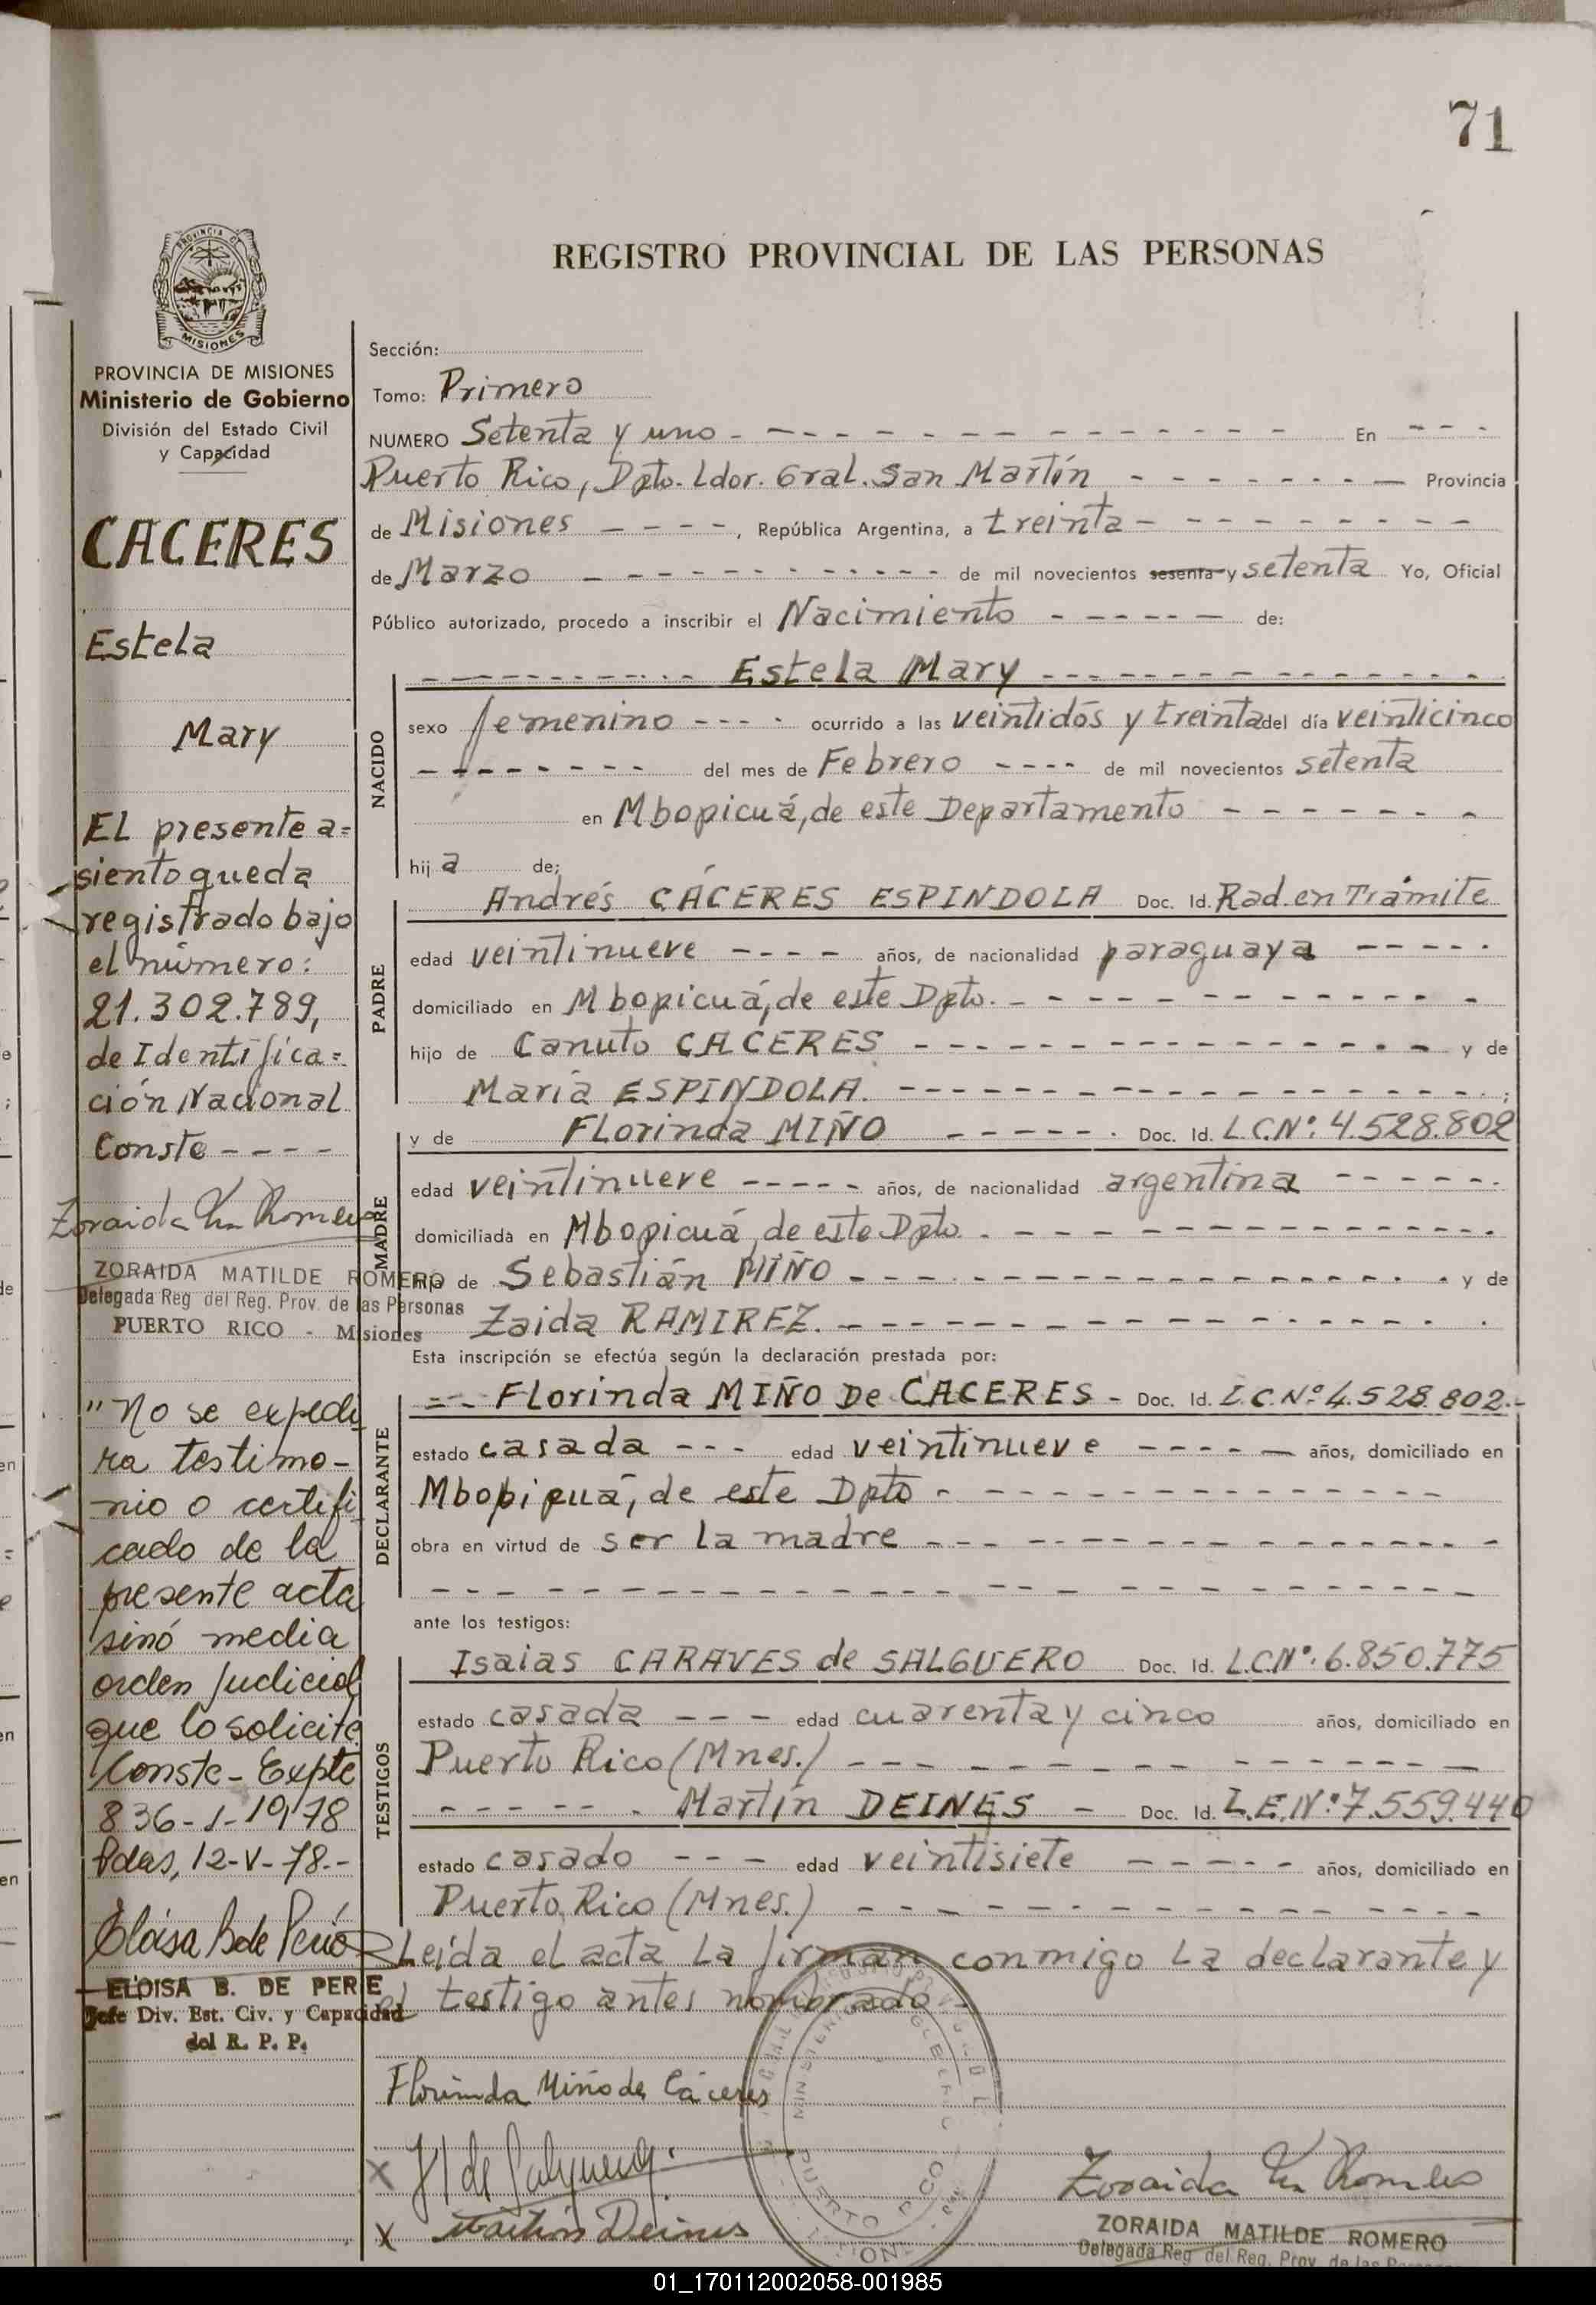 71
PROVINCIA DE
MISIONES
REGISTRO PROVINCIAL DE LAS PERSONAS
PROVINCIA DE MISIONES
Ministerio de Gobierno
División del Estado Civil
y Capacidad
CACERES
Estela
Mary
EL presente a=
siento queda
registrado bajo
el número:
21.302.789,
de Identifica=
ción Nacional
Conste ----
Zoraida M. Romero
ZORAIDA MATILDE ROMERO
Delegada Reg del Reg. Prov. de las Personas
PUERTO RICO - Misiones
"No se expedi
ra testimo-
nio o certifi
cado de la
presente acta
sinó media
orden Judicial
que lo solicite
Conste - Expte
836-1-1978
Pdas, 12-V-78.-
Eloisa B de Perié
ELOISA B. DE PERIE
Jefe Div. Est. Civ. y Capacidad
del R. P. P.
Sección:
Tomo: Primero
NUMERO Setenta y uno - - - - - En - - -
Puerto Rico, Dpto. Ldor. Gral. San Martín - - - - - Provincia
de Misiones - - - -, República Argentina, a treinta - - - - -
de Marzo - - - - - de mil novecientos sesenta y setenta Yo, Oficial
Público autorizado, procedo a inscribir el Nacimiento - - - - - de:
- - - - - Estela Mary - - - - -
NACIDO
sexo femenino - - - - ocurrido a las veintidós y treinta del día veinticinco
- - - - - del mes de Febrero - - - - de mil novecientos setenta
en Mbopicuá, de este Departamento - - - - -
hija de;
PADRE
Andrés CÁCERES ESPINDOLA Doc. Id. Rad. en Trámite
edad veintinueve - - - - años, de nacionalidad paraguaya - - - - -
domiciliado en Mbopicuá, de este Dpto. - - - - -
hijo de Canuto CACERES - - - - - y de
María ESPINDOLA. - - - - - ;
MADRE
y de Florinda MIÑO - - - - - Doc. Id. L.C.Nº: 4.528.802
edad veintinueve - - - - - años, de nacionalidad argentina - - - - -
domiciliada en Mbopicuá, de este Dpto. - - - - -
hija de Sebastián MIÑO - - - - - y de
Zaida RAMIREZ. - - - - -
Esta inscripción se efectúa según la declaración prestada por:
DECLARANTE
=-- Florinda MIÑO De CACERES - Doc. Id. L.C.Nº: 4.528.802.-
estado casada - - - edad veintinueve - - - - - años, domiciliado en
Mbopipuá, de este Dpto - - - - -
obra en virtud de ser la madre - - - - -
- - - - -
ante los testigos:
TESTIGOS
Isaias CARAVES de SALGUERO Doc. Id. L.C.Nº: 6.850.775
estado casada - - - edad cuarenta y cinco años, domiciliado en
Puerto Rico (Mnes.) - - - - -
- - - - - Martín DEINES - Doc. Id. L.E.Nº: 7.559.440
estado casado - - - edad veintisiete - - - - - años, domiciliado en
Puerto Rico (Mnes.) - - - - -
Leída el acta la firman conmigo la declarante y
el testigo antes nombrado -
Florinda Miño de Cáceres
X de Salguero
X Martin Deines
PUERTO RICO
Zoraida M. Romero
ZORAIDA MATILDE ROMERO
Delegada Reg del Reg. Prov. de las
01_170112002058-001985